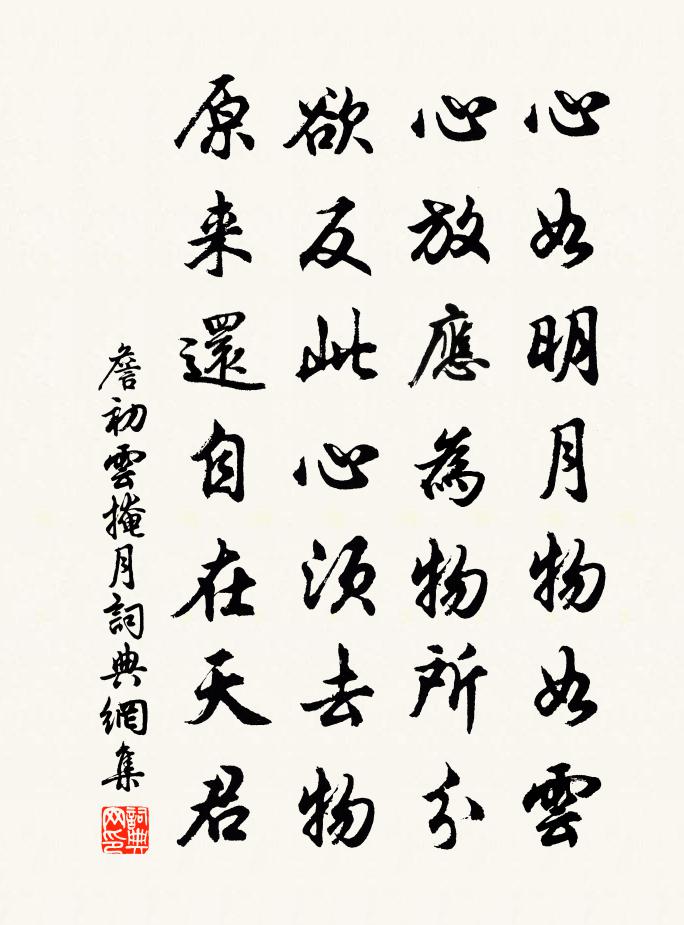 心如明月物如雲
心放應為物所分
欲反此心須去物
原来還自在天君
詹初雲掩月詞典網集
詞典网印